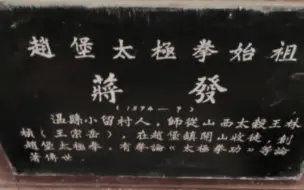 趙堡太極拳始祖
蔣發
(1574-?)
溫縣小留村人，師從山西太穀王林
楨（王宗岳），在趙堡鎮開山收徒，創
趙堡太極拳，有拳論《太極拳功》等論
著傳世。